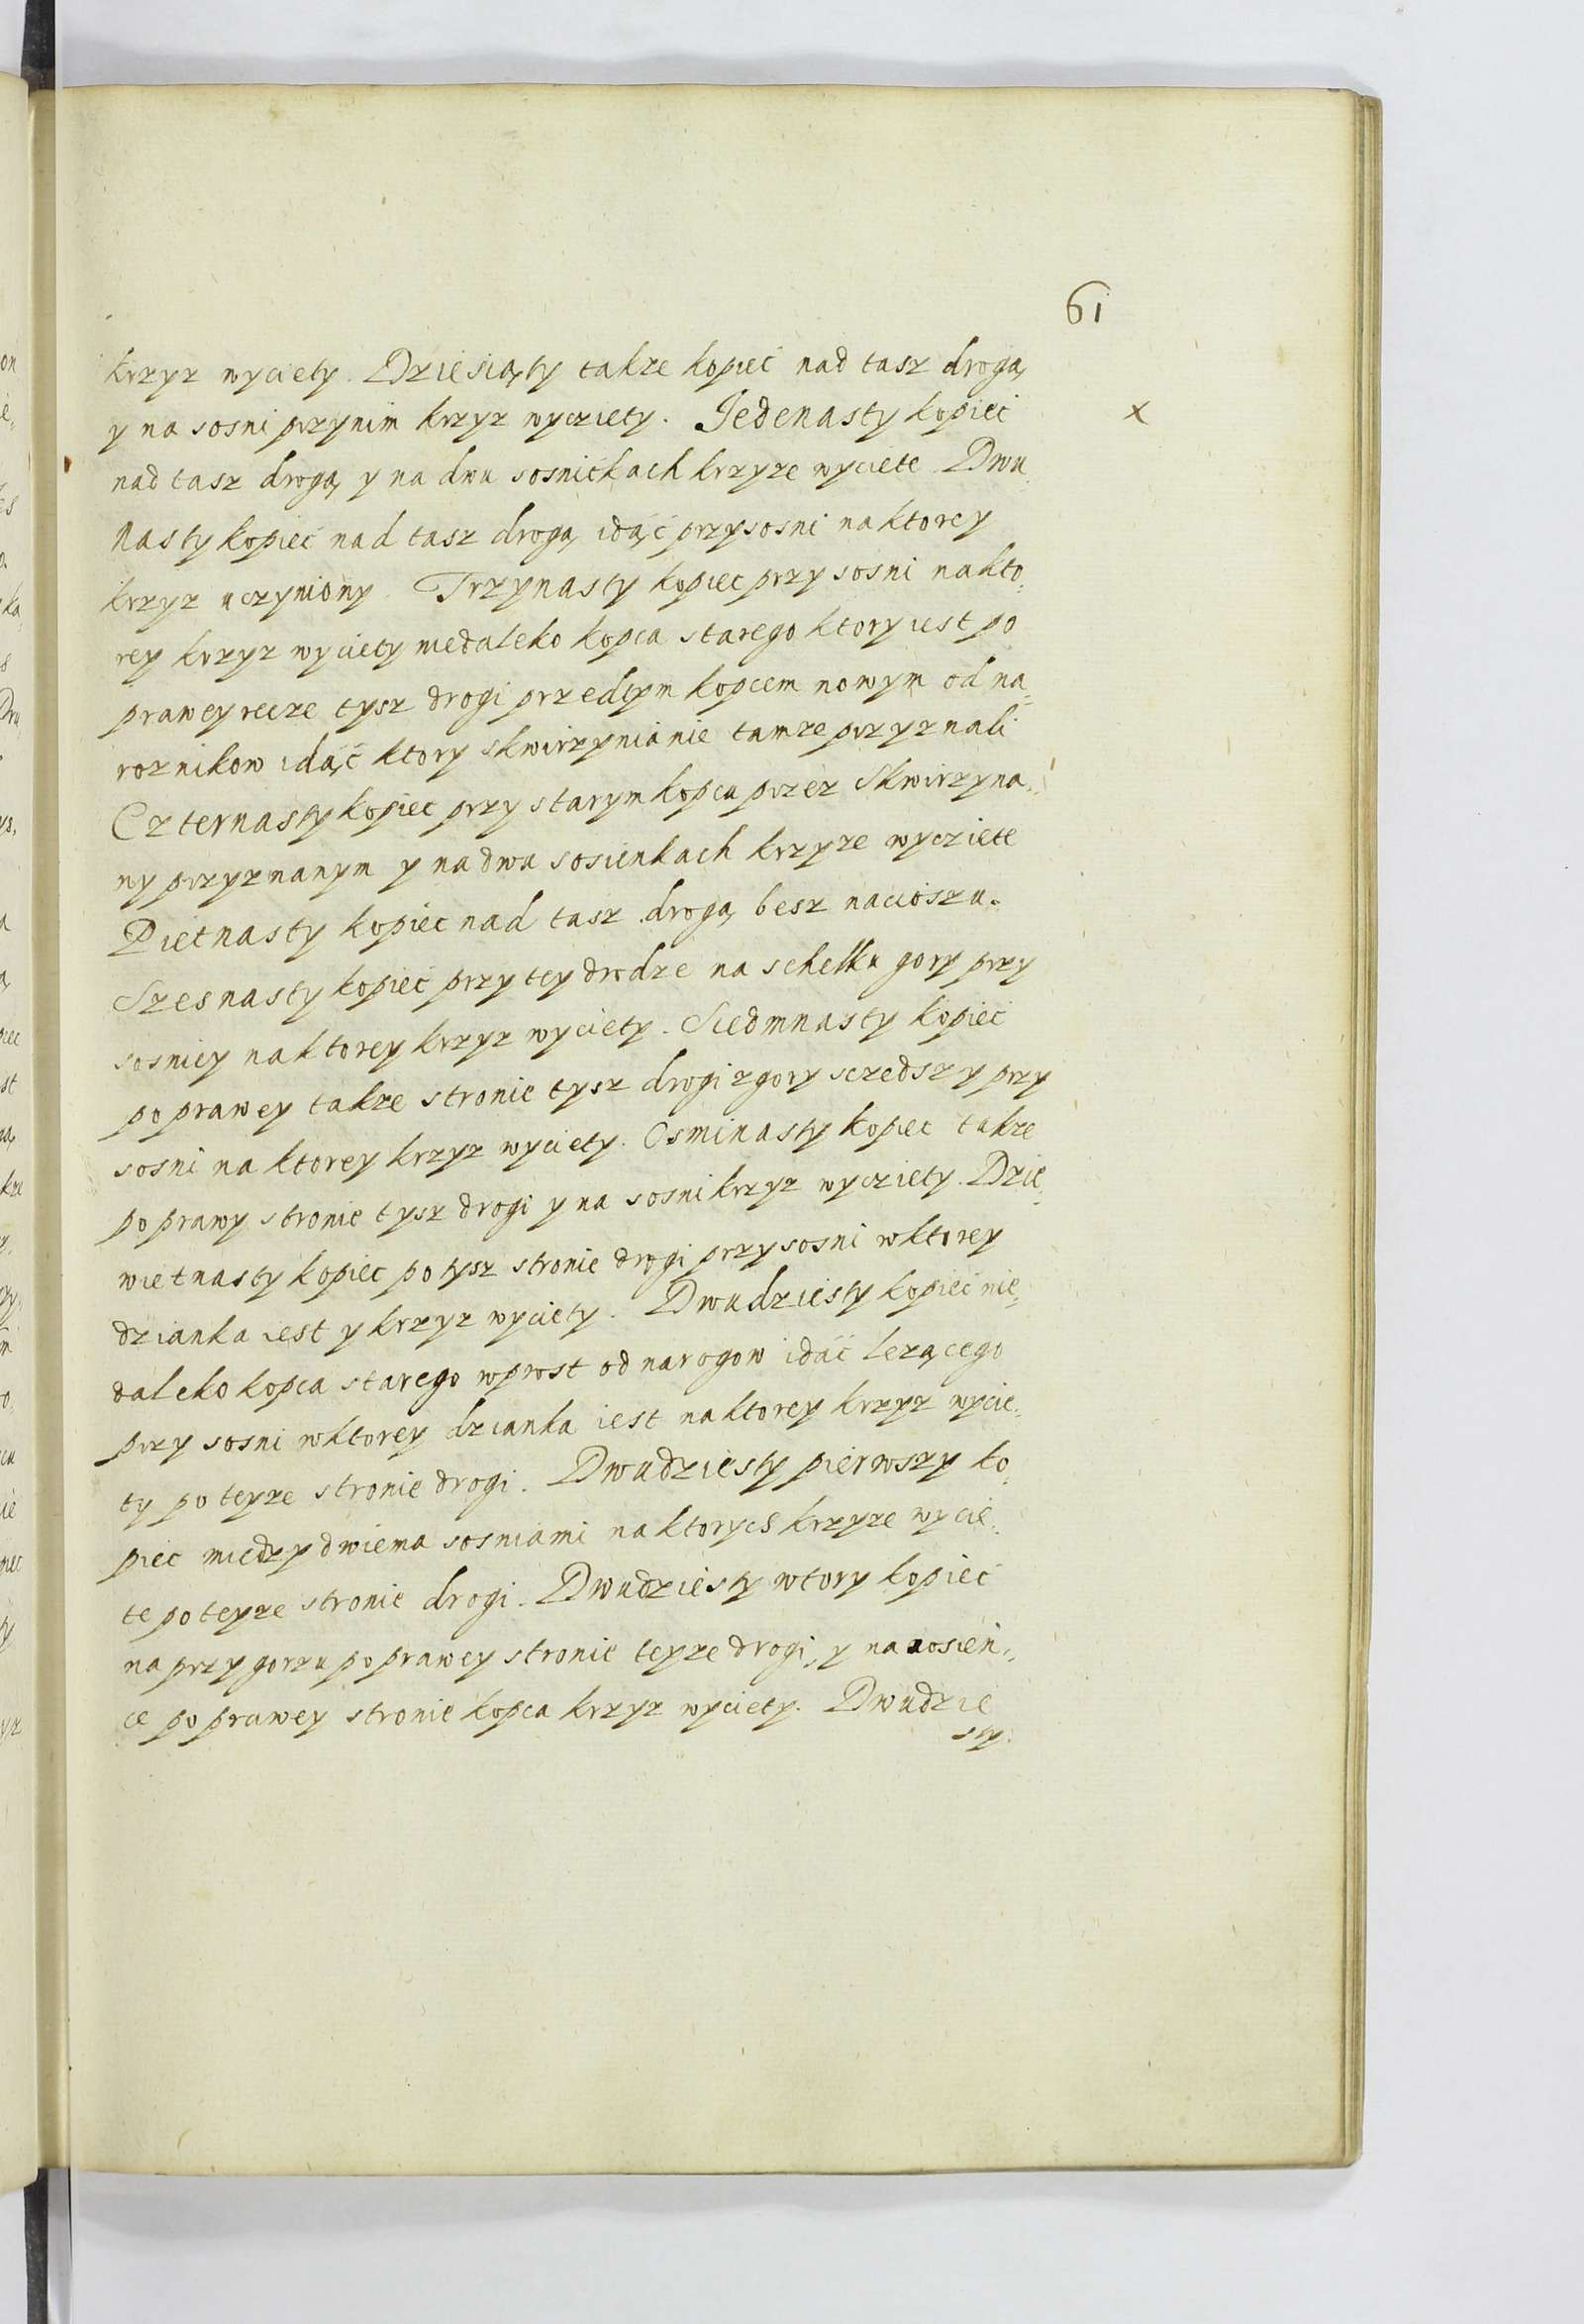 61
krzyz wyciety. Dziesiąty takze kopiec nad tasz drogą
y na sosni przynim krzyz wycziety. Jedenasty kopiec
x
nad tasz drogą y na dwu sosnickach krzyze wyciete Dwu
nasty kopiec nad tasz drogą idąc przysosni naktorey
krzyz uczyniony. Trzynasty kopiec przy sosni nakto,
rey krzyz wyciety niedaleko kopca starego ktory iest po
prawey recze tysz drogi przedtym kopcem nowym od na,
roznikow idąc ktory skwirzynianie tamze przyznali
Czternasty kopiec przy starym kopcu przez Skwirzyna,
ny przyznanym y nadwu sosienkach krzyze wyczięte
Pietnasty kopiec nad tasz drogą besz nacioszu.
Szesnasty kopiec przy tey drodze na schelku gory przy
sosniey naktorey krzyz wyciety. Siedmnasty kopiec
po prawey takze stronie tysz drogi zgory sczedszy przy
sosni na ktorey krzyz wyciety. Osminasty kopiec takze
po prawy stronie tysz drogi y na sosni krzyz wycziety. Dzie,
wietnasty kopiec po tysz stronie drogi przysosni wktorey
dzianka iest y krzyz wyciety. Dwudziesty kopiec nie,
daleko kopca starego wprost od narogow idąc lezącego
przy sosni wktorey dzianka iest naktorey krzyz wycie,
ty po teyze stronie drogi. Dwudziesty pierwszy ko,
piec miedzy dwiema sosniami naktorych krzyze wycie,
te po teyze stronie drogi. Dwudziesty wtory kopiec
na przygorzu po prawey stronie teyze drogi, y na sosien,
ce po prawey stronie kopca krzyz wyciety. Dwudzie
sty.